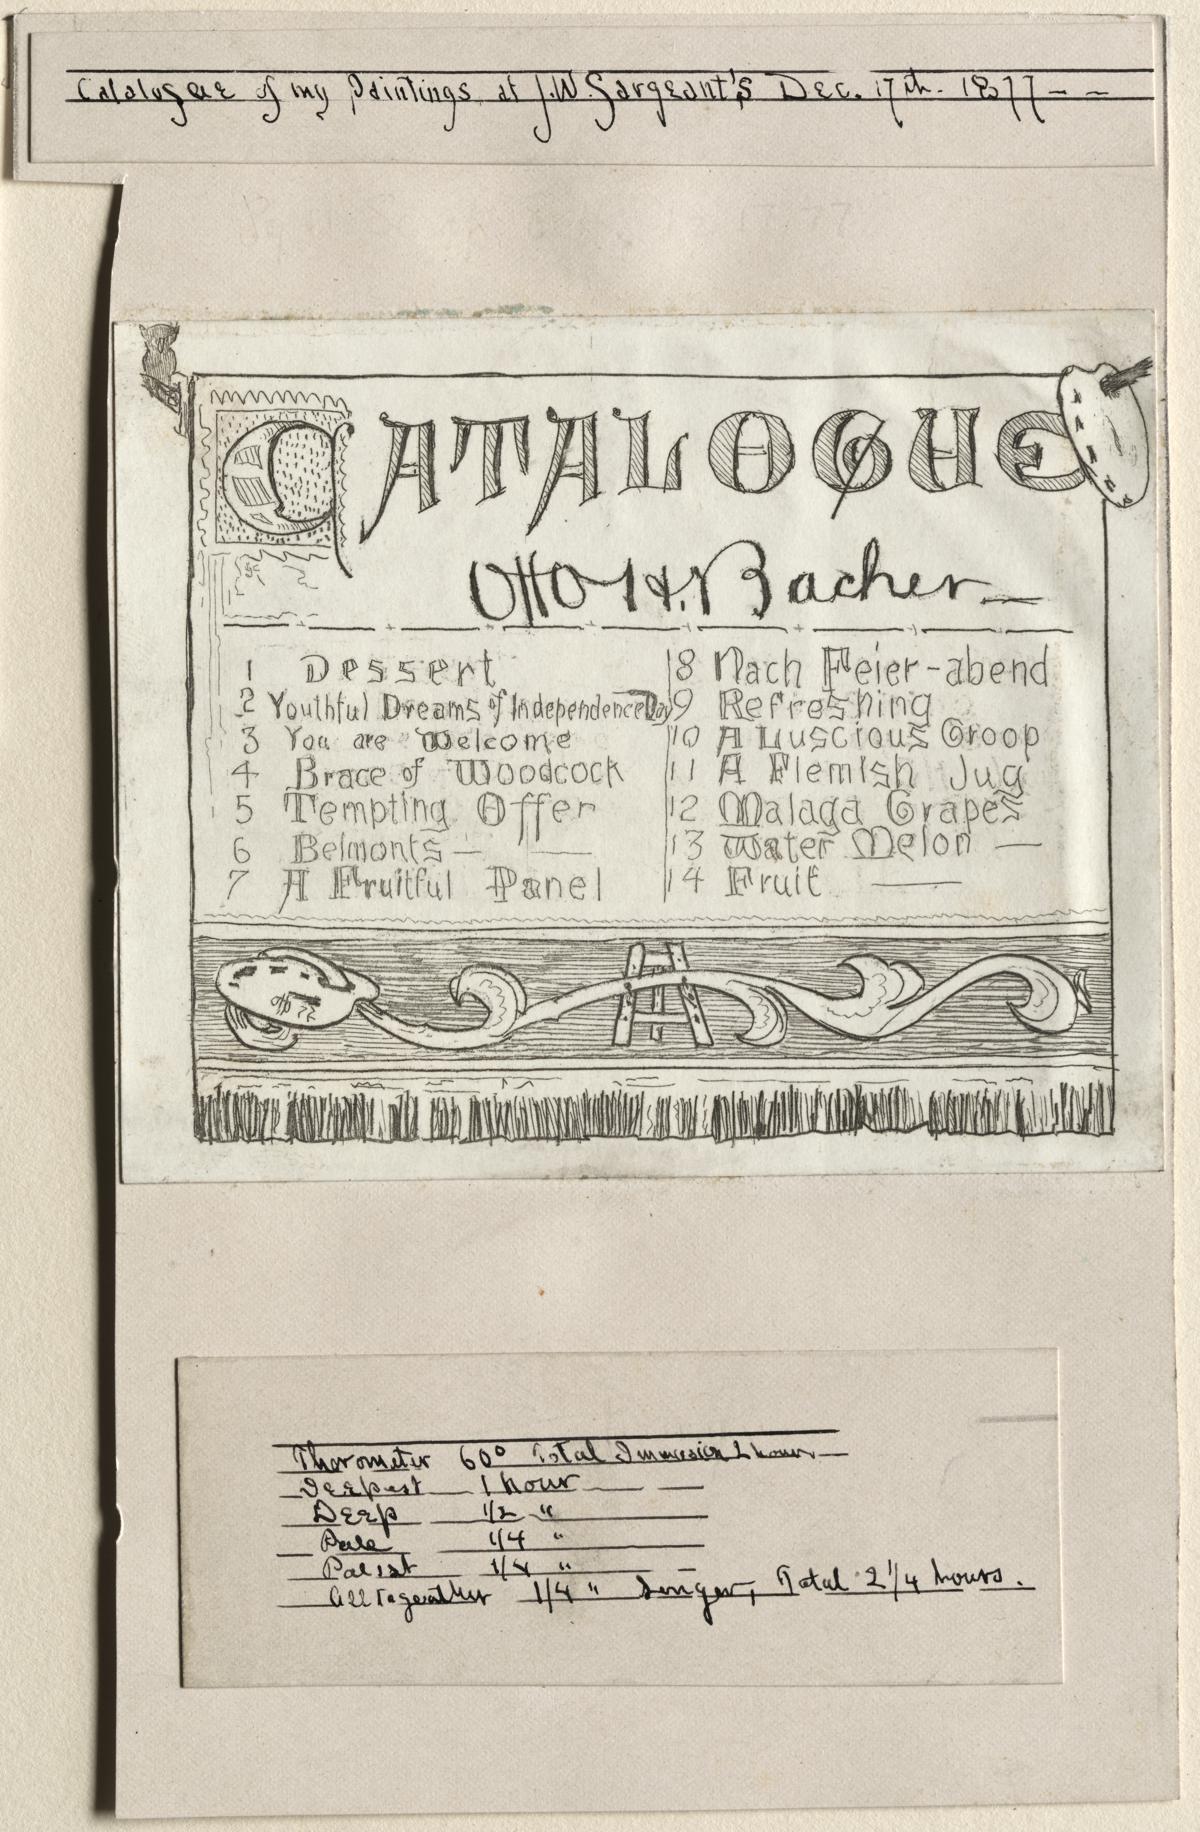 Catalogue of my Paintings at J.W. Sargeant's Dec. 17th. 1877 - -
CATALOGUE
Otto H. Bacher
1 Dessert
2 Youthful Dreams of Independence Day
3 You are Welcome
4 Brace of Woodcock
5 Tempting Offer
6 Belmonts —
7 A Fruitful Panel
8 Nach Feier-abend
9 Refreshing
10 A Luscious Groop
11 A Flemish Jug
12 Malaga Grapes
13 Water Melon —
14 Fruit —
Therometer 60° Total Immersion 2 hours —
Deepest — 1 hour — —
Deep — 1/2 "
Pale — 1/4 "
Palest 1/4 "
Alltogeather 1/4 " longer, Total 2 1/4 hours.